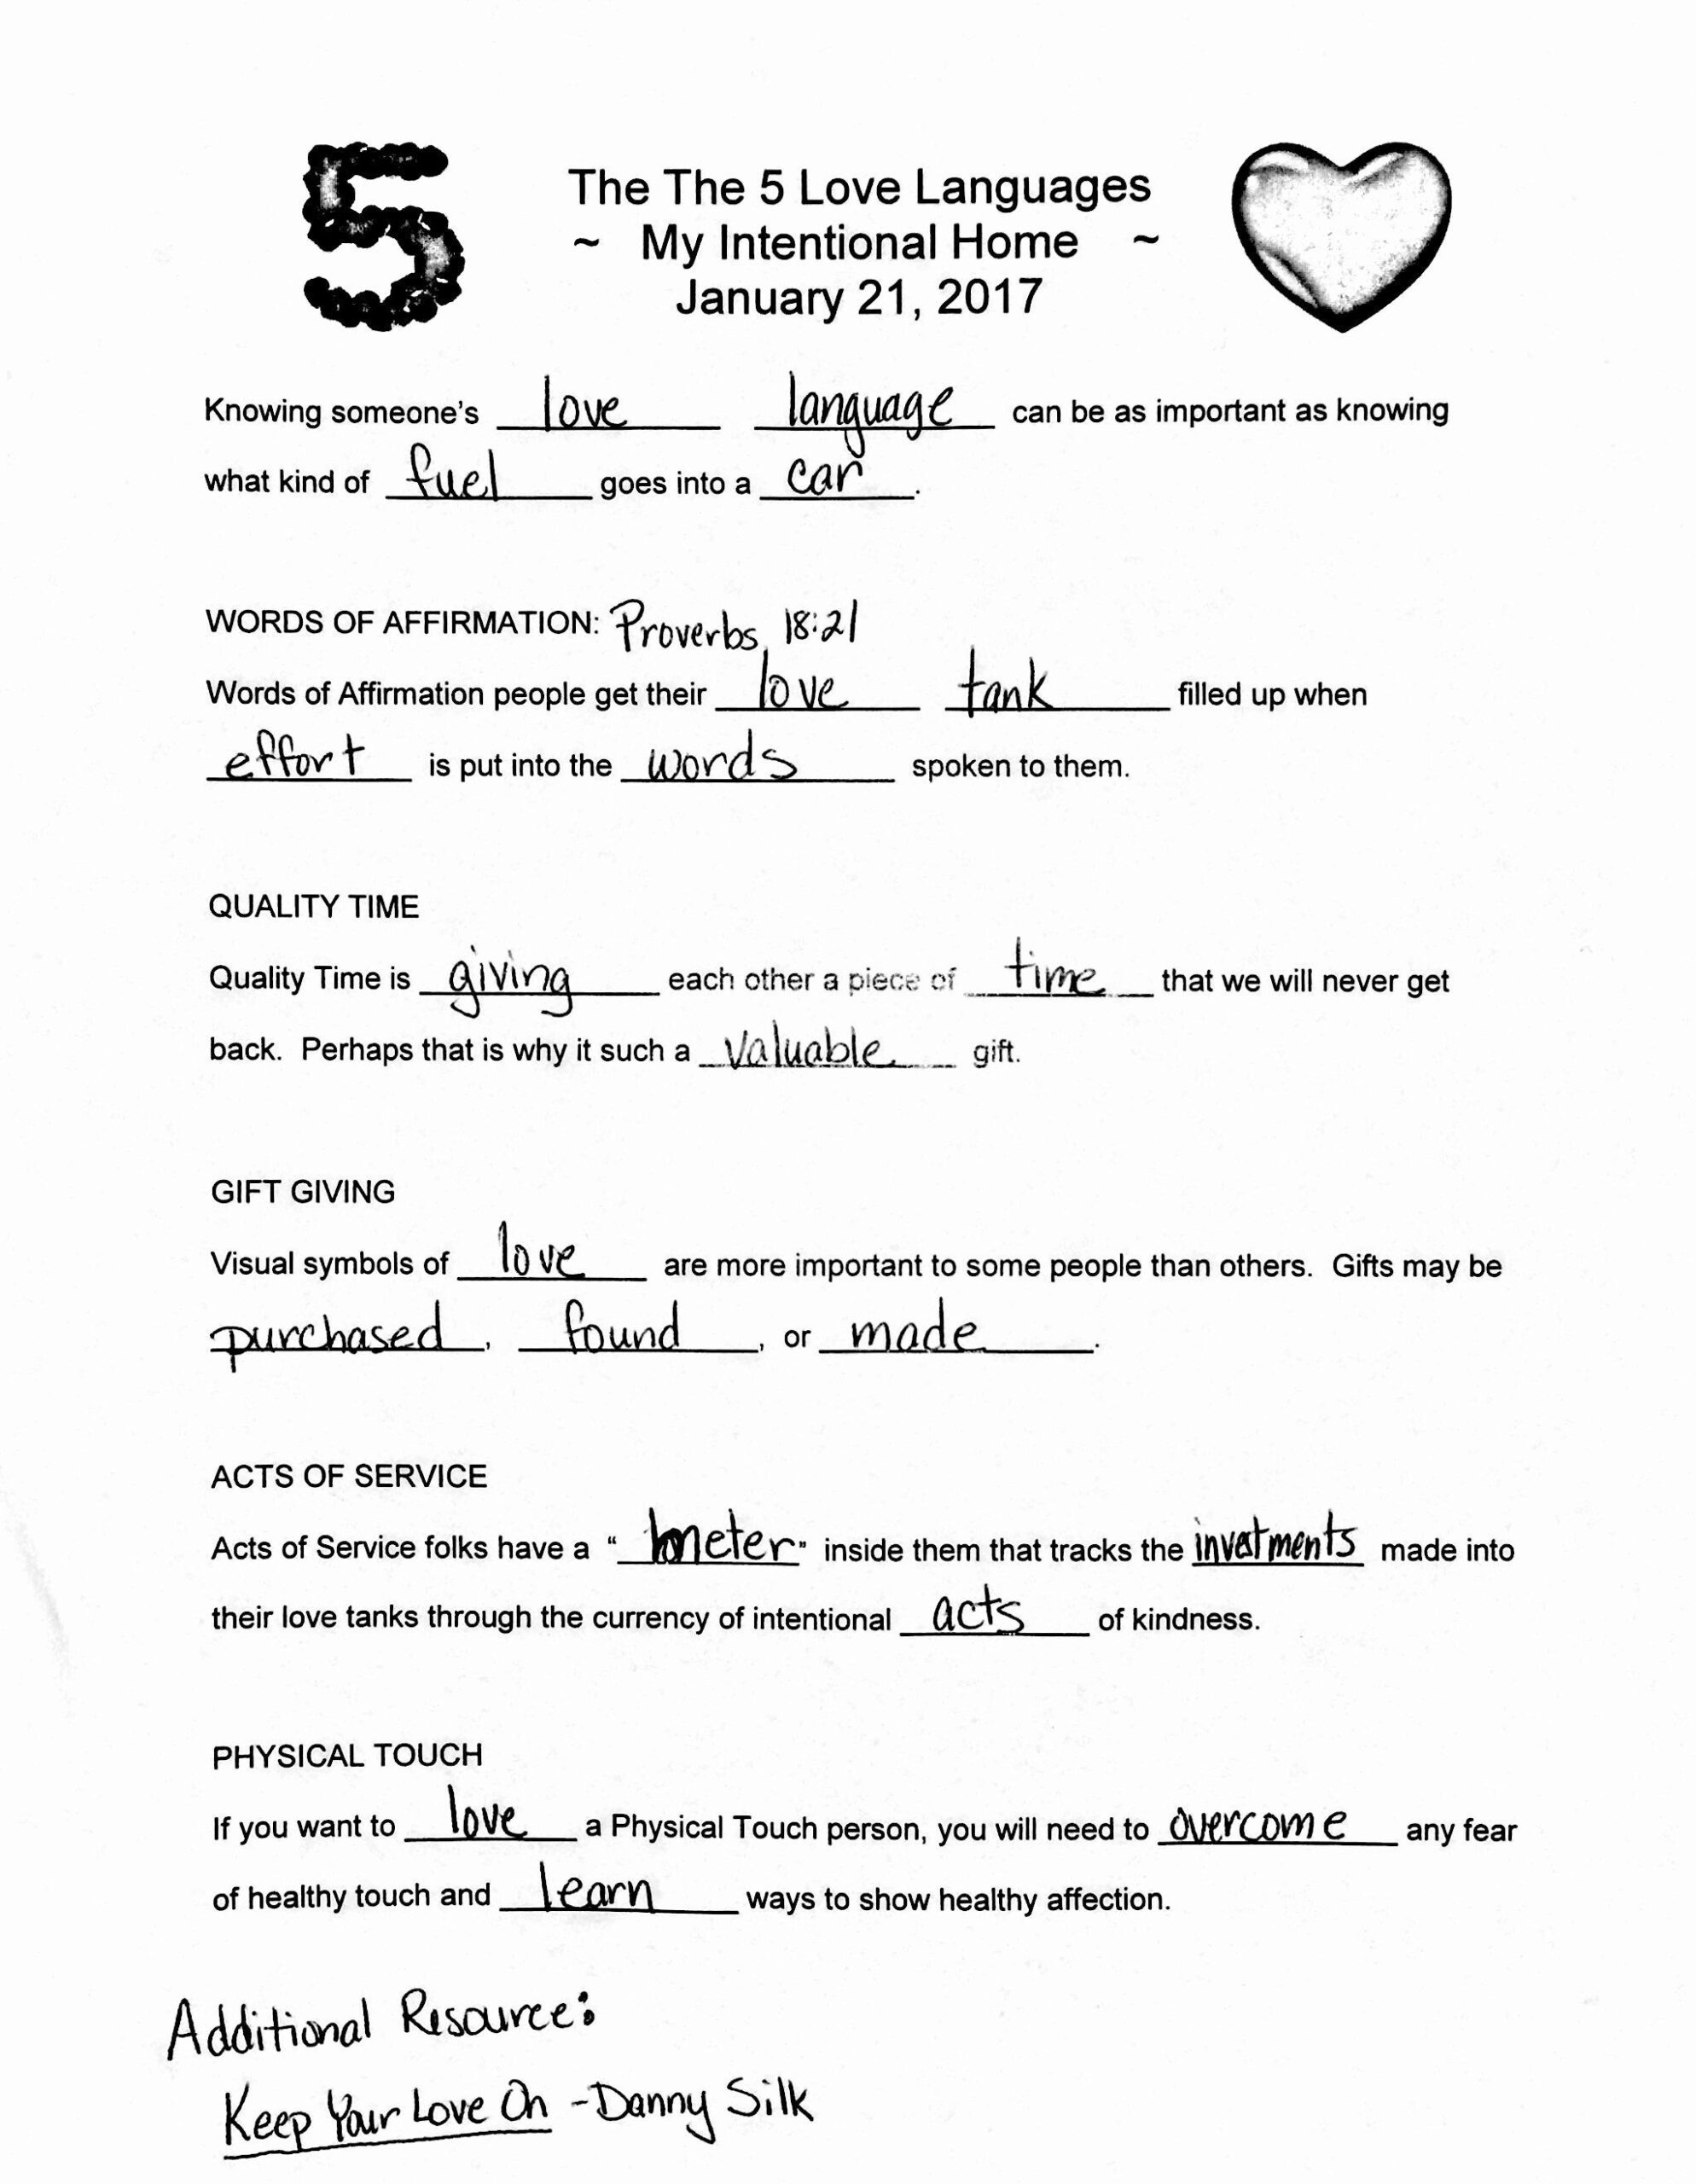 5
The The 5 Love Languages
~ My Intentional Home ~
January 21, 2017
Knowing someone's love language can be as important as knowing
what kind of fuel goes into a car.
WORDS OF AFFIRMATION: Proverbs 18:21
Words of Affirmation people get their love tank filled up when
effort is put into the words spoken to them.
QUALITY TIME
Quality Time is giving each other a piece of time that we will never get
back. Perhaps that is why it such a valuable gift.
GIFT GIVING
Visual symbols of love are more important to some people than others. Gifts may be
purchased, found, or made.
ACTS OF SERVICE
Acts of Service folks have a "meter" inside them that tracks the invetments made into
their love tanks through the currency of intentional acts of kindness.
PHYSICAL TOUCH
If you want to love a Physical Touch person, you will need to overcome any fear
of healthy touch and learn ways to show healthy affection.
Additional Resource:
Keep Your Love On - Danny Silk